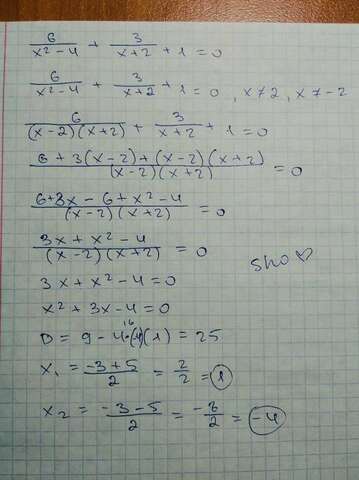 6/(x²-4) + 3/(x+2) + 1 = 0
6/(x²-4) + 3/(x+2) + 1 = 0, x≠2, x≠-2
6/((x-2)(x+2)) + 3/(x+2) + 1 = 0
(6+3(x-2)+(x-2)(x+2))/((x-2)(x+2)) = 0
(6+3x-6+x²-4)/((x-2)(x+2)) = 0
(3x+x²-4)/((x-2)(x+2)) = 0
3x+x²-4=0
sho♡
x²+3x-4=0
16
x₁ = (-3+5)/2 = 2/2 = 1
x₂ = (-3-5)/2 = -8/2 = -4